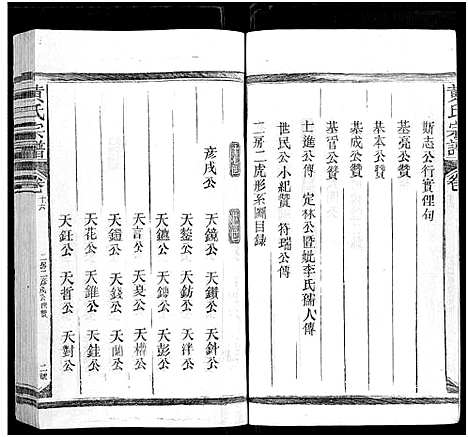 黄氏宗譜
卷
斯志公行實俚句
基亮公贊
基本公贊
基成公贊
基晉公贊
士進公傳 定林公暨妣李氏孺人傳
世民公小紀贊 符瑞公傳
二房二虎形系圖目錄
彥戌公
天鏡公 天鑽公 天針公
天鏊公 天鈁公 天泮公
天鑣公 天鑄公 天彭公
天言公 天炱公 天權公
天鎧公 天錢公 天蘭公
天花公 天錐公 天銈公
天鈺公 天哲公 天對公
黄氏宗譜
卷
十六
二號